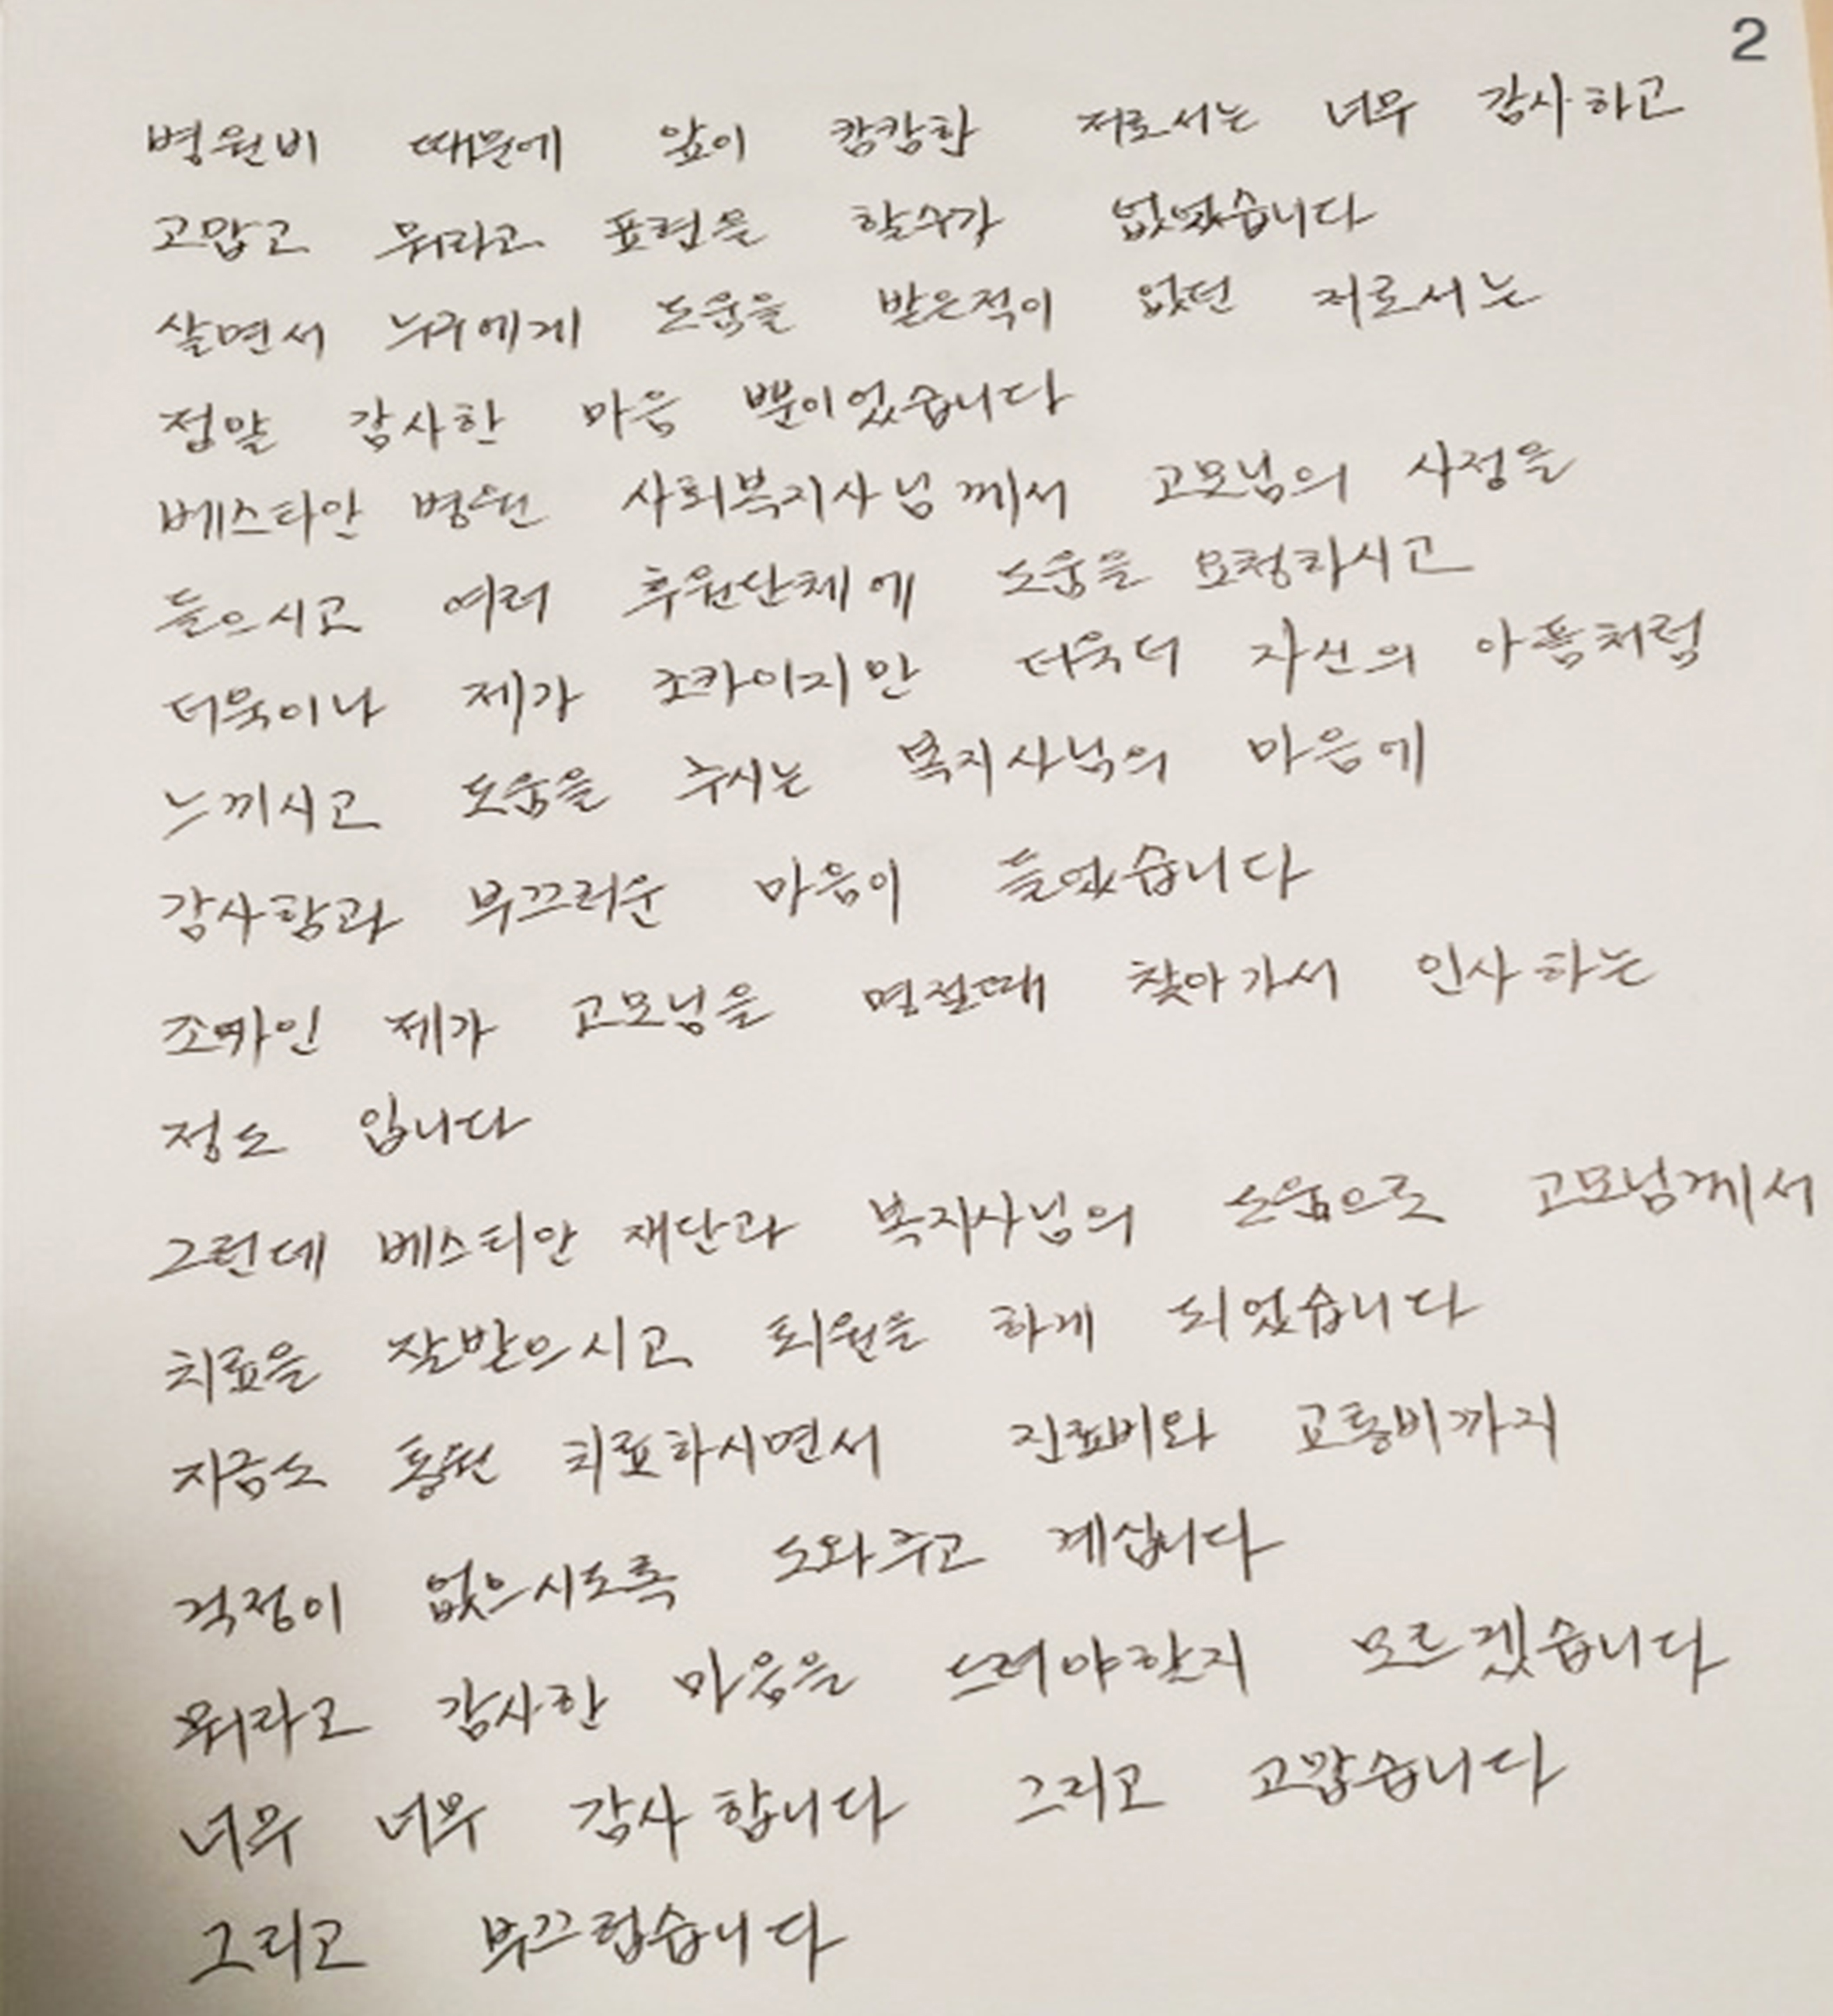 2
병원비 때문에 앞이 캄캄한 저로서는 너무 감사하고
고맙고 뭐라고 표현을 할수가 없었습니다
살면서 누구에게 도움을 받은적이 없던 저로서는
정말 감사한 마음 뿐이었습니다
베스타안 병원 사회복지사님께서 고모님의 사정을
들으시고 여러 후원단체에 도움을 요청하시고
더욱이나 제가 조카이지만 더욱더 자신의 아픔처럼
느끼시고 도움을 주시는 복지사님의 마음에
감사함과 부끄러운 마음이 들었습니다
조카인 제가 고모님을 명절때 찾아가서 인사하는
정도 입니다
그런데 베스티안 재단과 복지사님의 도움으로 고모님께서
치료을 잘받으시고 퇴원을 하게 되었습니다
지금도 통원 치료하시면서 진료비와 교통비까지
걱정이 없으시도록 도와주고 계십니다
뭐라고 감사한 마음을 드려야할지 모르겠습니다
너무 너무 감사합니다 그리고 고맙습니다
그리고 부끄럽습니다